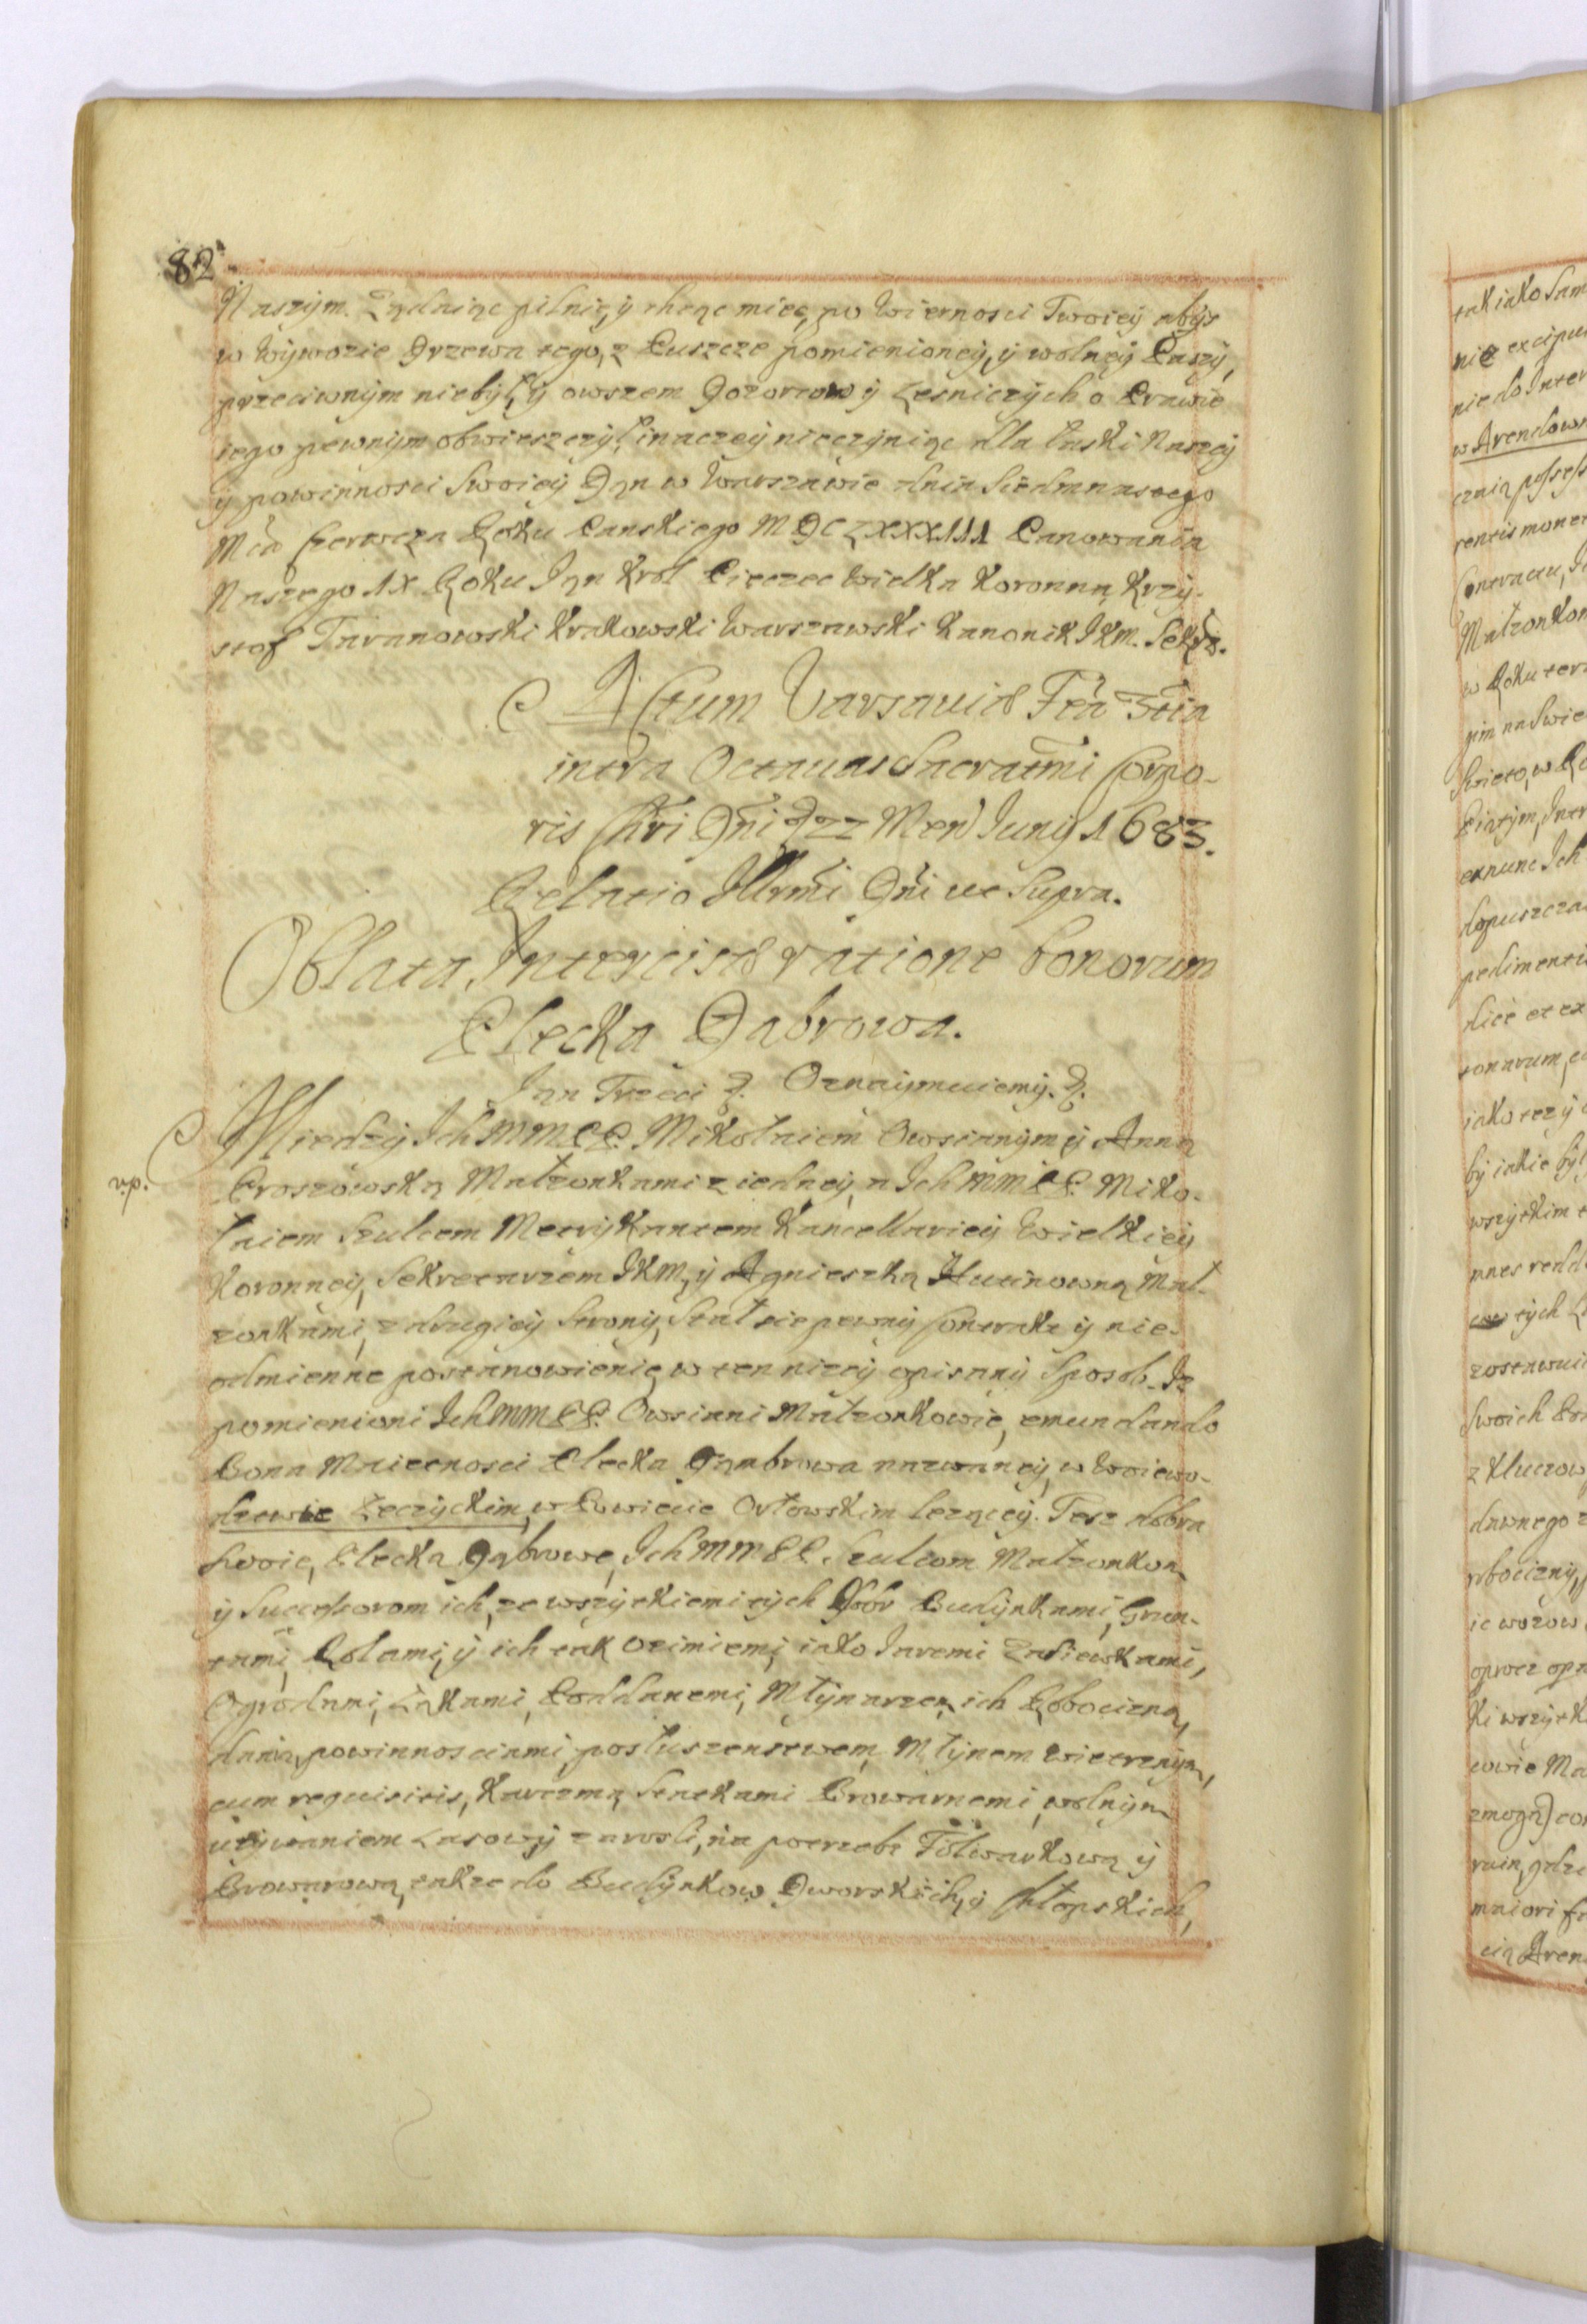 82
Naszym. Żądaiąc pilnie, y chcąc mieć, po Wiernosci Twoiey abys
w Wywozie Drzewa tego, z Puszcze pomienioney, y wolney Paszy,
przeciwnym niebył, y owszem Dozorcow y Lesniczych o Prawie
iego pewnym obwieszczył, inaczey nieczyniąc dla łaski Naszey
y powinnosci Swoiey Dan w Warszawie dnia Siedmnastego
Mca Czerwcza Roku Panskiego MDCLXXXIII Panowania
Naszego IX Roku Jan Krol Pieczec Wielka Koronna Krzy-
stof Taranowski Krakowski Warszawski Kanonik JKM. Sekrz.
Actum Varsaviæ Fria 3tia
intra Octauas Sacratmi Corpo-
ris Chri Dni D 22 Men Iunÿ 1683.
Relatio Illrmi Dni ut Supra.
Oblata, Intercisæ ratione bonorum
Plecka Dabrowa.
Jan Trzeci &. Oznaymuiemy. &.
Miedzy Ich MMPP. Mikołaiem Owsianym y Anną
v.p.
Proszowską Małzonkami z iedney, a Ich MMPP. Miko-
łaiem Szulcem Metrykantem Kancellariey Wielkiey
Koronney, Sekretarzem JKM, y Agnieszką Hucinowną Mał-
zonkami, z drugiey Strony, Stał sie pewny Contrakt y nie-
odmienne postanowienie, w ten nizey opisany Sposob. Iz
pomienioni Ich MMPP. Owsiani Małzonkowie, emundando
Bona Maietnosci Plecka Dąmbrowa nazwaney, w Woiewo-
dztwie Łeczyckim, w Powiecie Orłowskim lezącey. Tesz dobra
Swoie, Plecką Dąbrowę, Ich MMPP. Szulcom Małzonkom
y Successorom ich, ze wszytkiemi tych Dobr Budynkami, Grun-
tami, Rolami, y ich tak Ozimiemi, iako Iaremi Zasiewkami,
Ogrodami, Łąkami, Poddanemi, Młynarzem, ich Robocizną,
danią, powinnosciami, posłuszenstwem, Młynem wietrznym,
cum requisitis, Karczmą, Statkami Browarnemi, wolnym
uzywaniem Lasow, y zarosli, na potrzebe Folwarkową y
Browarową, takze do Budynkow Dworskich, y Chłopskich,